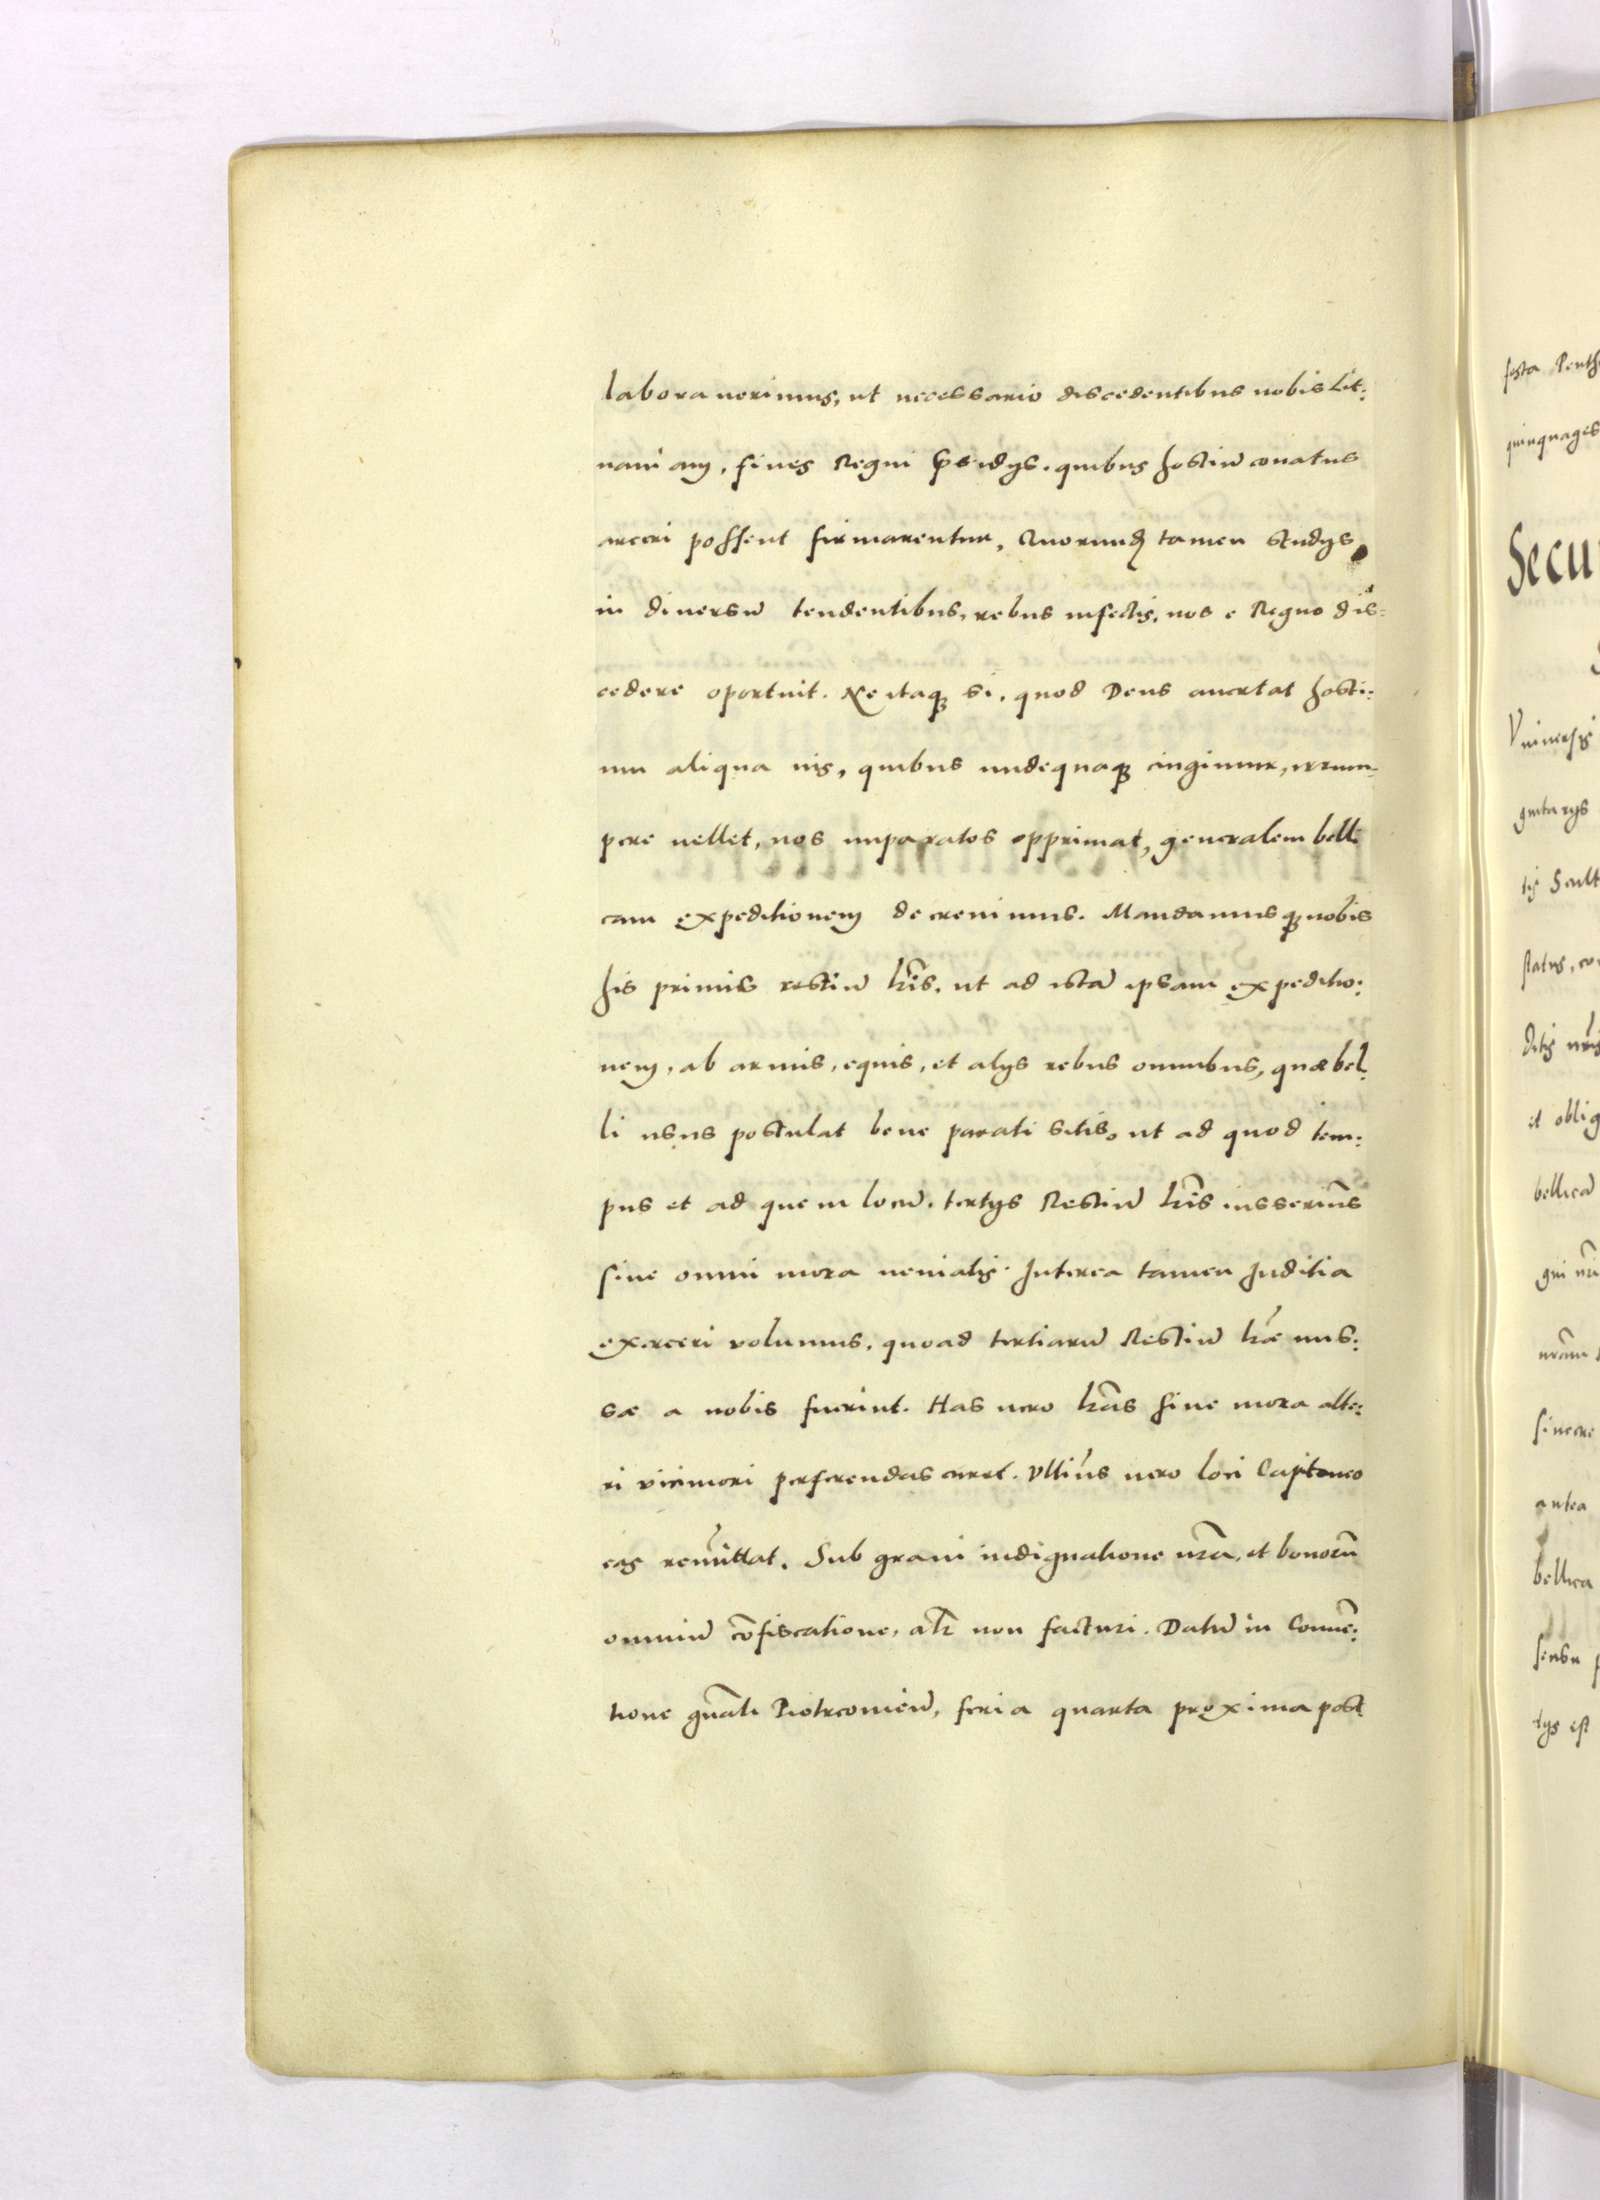 laborauerimus, ut necessario discedentibus nobis Lit:
uaniam, fines Regni p̃sidijs, quibus hostiũ conatus
arceri possent firmarentur, Quorundã tamen studijs
in diuersũ tendentibus, rebus infectis, nos e Regno dis:
cedere oportuit. Ne itaq₃ si, quod Deus auertat hosti:
um aliqua uis, quibus undequaq₃ cingimur, irrum:
pere uellet, nos imparatos opprimat, generalem belli
cam expeditionem decreuimus. Mandamusq₃ uobis
his primis restiũ lr̃is, ut ad istã ipsam expeditio:
nem, ab armis, equis, et alijs rebus omnibus, quæ bel:
li usus postulat bene parati sitis, ut ad quod tem:
pus et ad quem locũ, tertijs Restiũ lr̃is iusserim̃s
sine omni mora ueniatis. Interea tamen Juditia
exerceri volumus, quoad tertiarũ Restiũ lr̃æ mis:
sæ a nobis fuerint. Has uero lr̃as sine mora alte:
ri viciniori perferendas curet. Vltim̃s uero loci Capitaneo
eas remittat. Sub graui indignatione nr̃a, et bonorũ
omniũ cõfiscatione, alr̃ non facturi. Datũ in Conuẽ:
tione gñali Piotrcouieñ, feria quarta proxima post
festa Penth
quinquages
Secu
Vniuersis
gnitarijs
status, co
et oblig
bellicã
nr̃am
sincere
antea
bellica
sensu